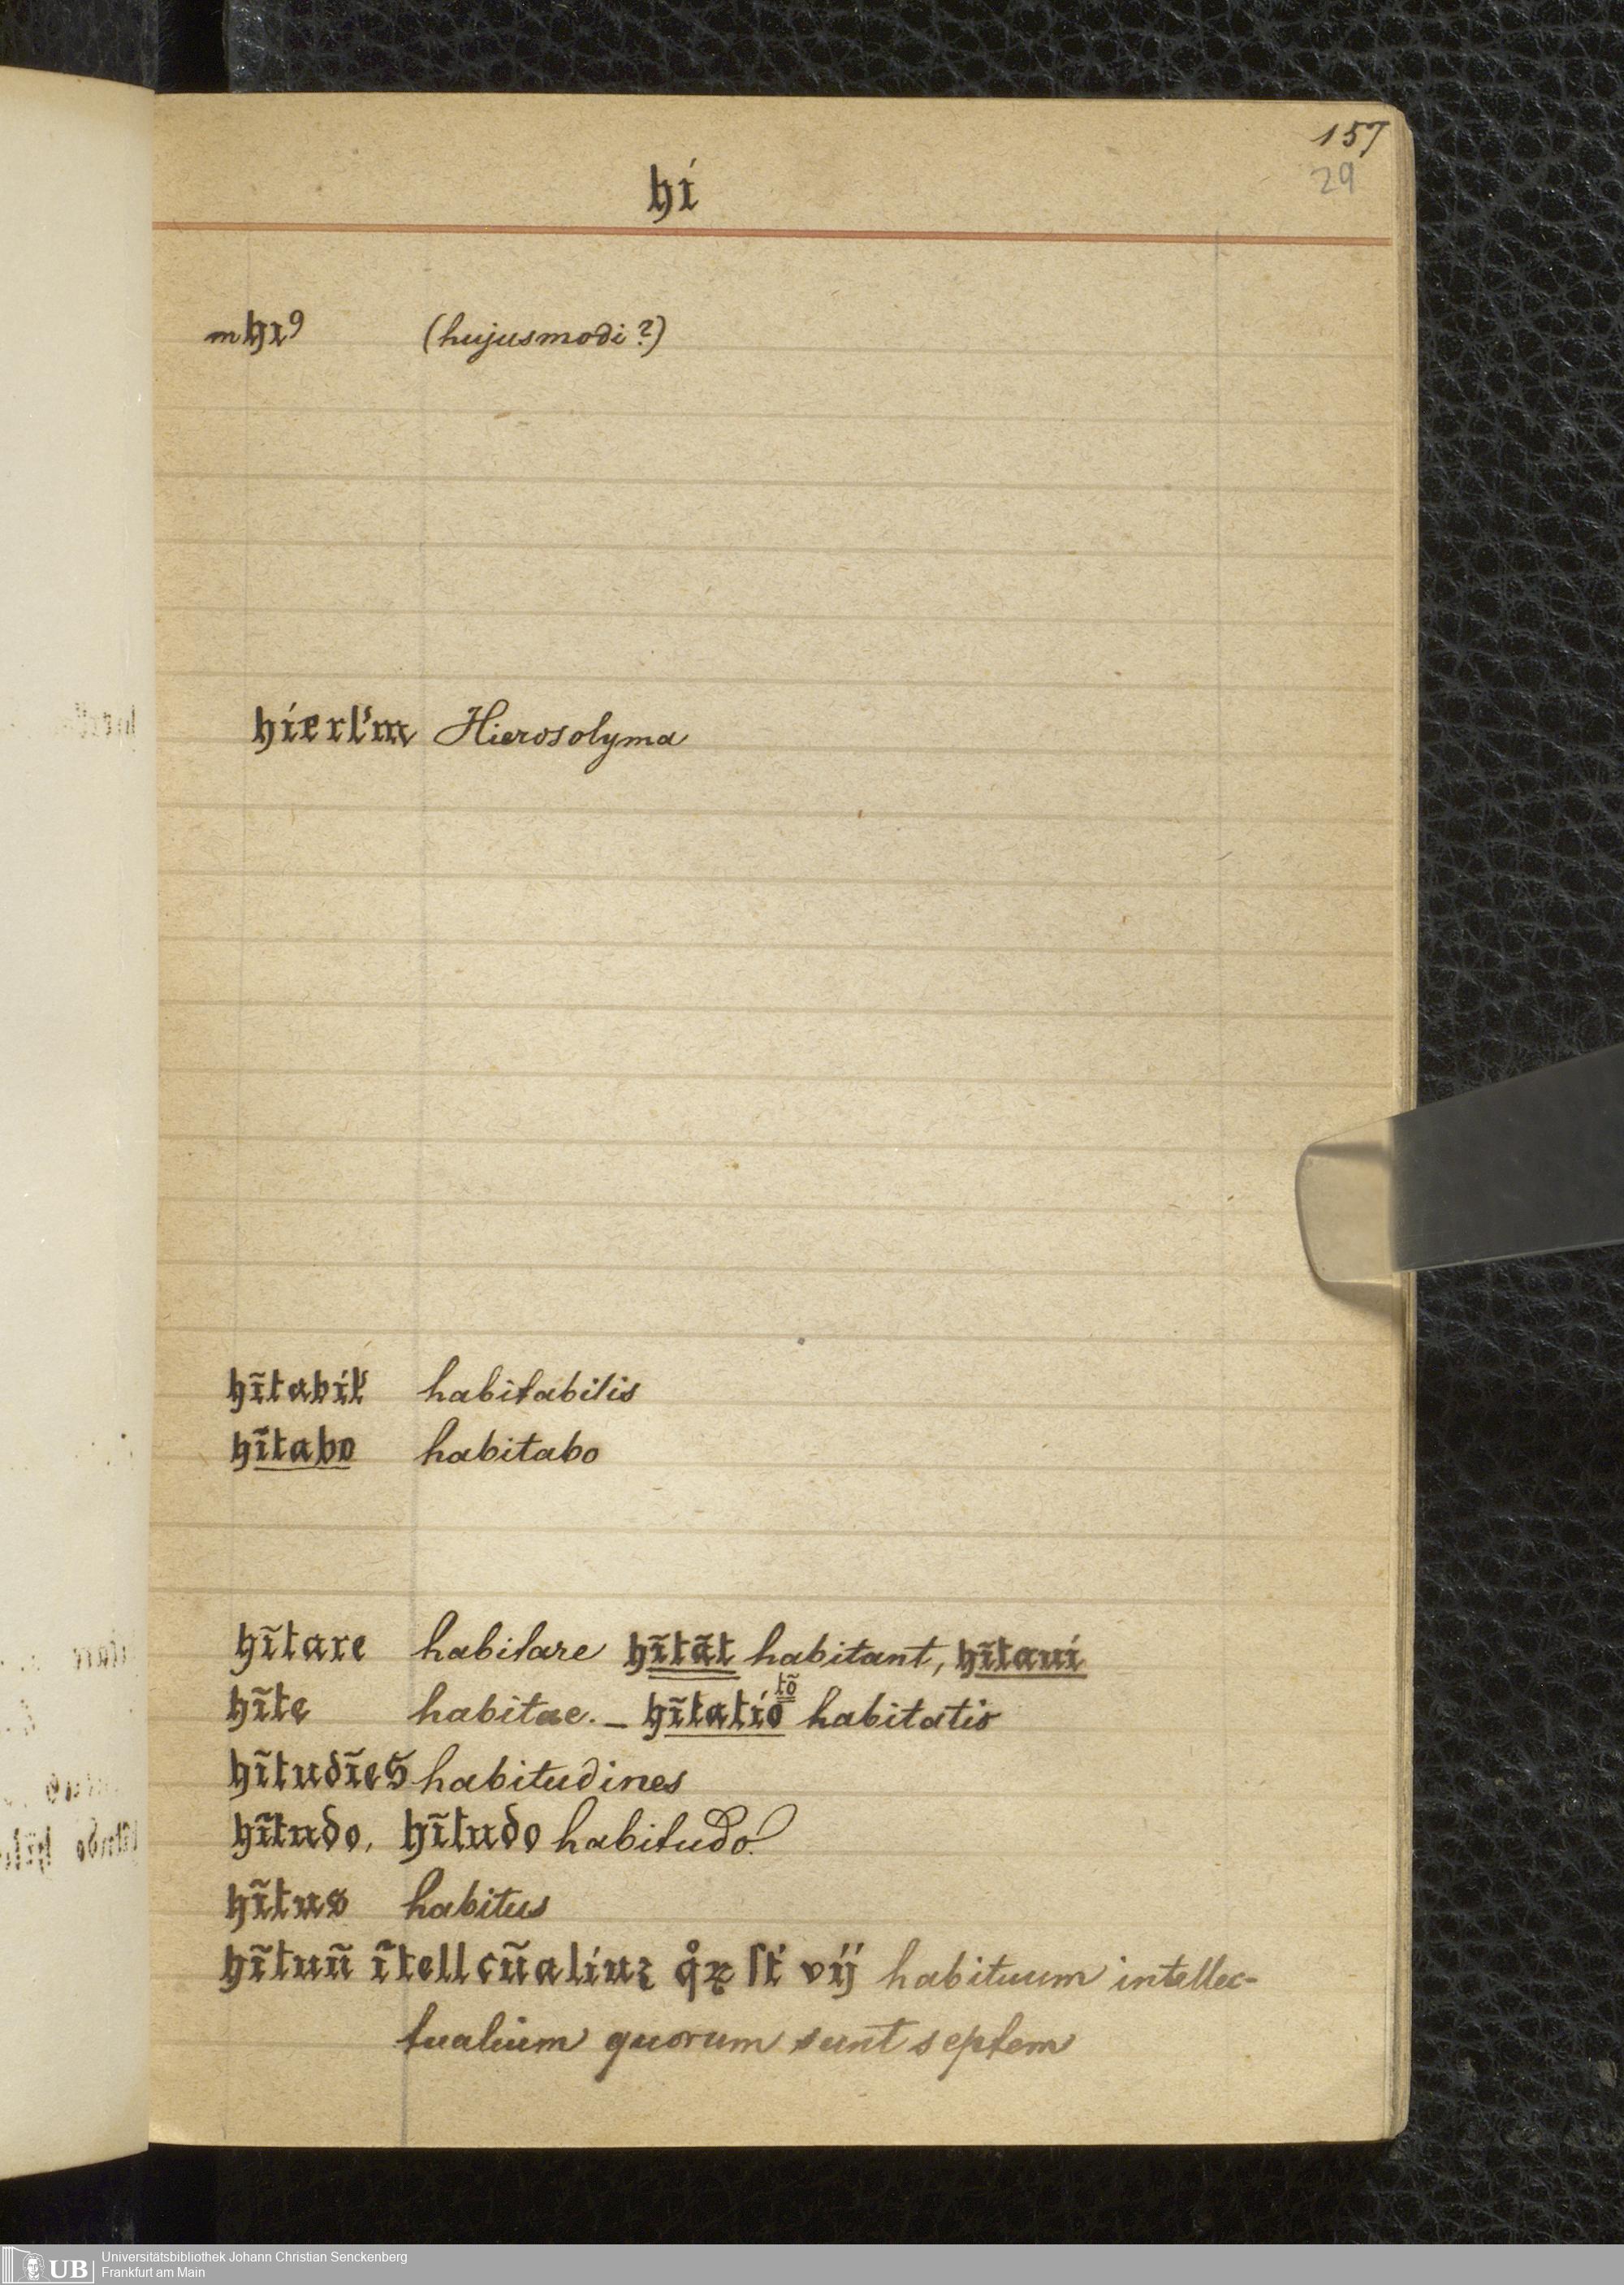 157
29
hi
mhıꝰ (hujusmodi?)
hierl'm Hierosolyma
hĩtabil' habitabilis
hĩtabo habitabo
hĩtare habitare hĩtãt habitant, hĩtaui
hĩte habitae. – hĩtatio tõ habitatio
hĩtudĩes habitudines
hĩtudo, hĩtudo habitudo?
hĩtus habitus
hĩtuũ ĩtellcũaliuꝫ q̊ꝝ ſt' vij habituum intellec-
tualium quorum sunt septem
UB Universitätsbibliothek Johann Christian Senckenberg
Frankfurt am Main